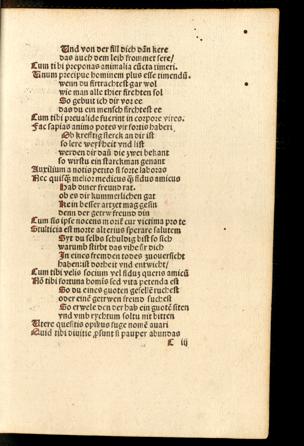 Und von der fill dich dañ kere
das auch dem leib frommet sere/
Cum tibi preponas animalia cūcta timeri.
Unum precipue hominem plus esse timendū.
wenn du firtrachtest gar wol
wie man alle thier firchten sol
So gebuit ich dir vor ee
das du ein mensch firchtest ee
Cum tibi preualide fuerint in corpore vires.
Fac sapias animo potes vir fortis haberi
Ob krefftig sterck an dir ist
so lere weyßheit vnd list
werden dir dañ die zwei bekant
so wirstu ein starckman genant
Auxilium a notis petito si forte laboras
Nec quisq̄ melior medicus q̄ fidus amicus
Hab diner freund rat.
ob es dir kummerlichen gat
Kein besser artzet mag gesin
denn der getrw freund din
Cum sis ipse nocens morit̄ cur victima pro te
Stulticia est morte alterius sperare salutem
Syt du selbs schuldig bist so sich
warumb stirbt das vihe fir dich
In eines fremden todes zuouersicht
haben: ist dorheit vnd entwicht/
Cum tibi velis socium vel fidus queris amicū
Nō tibi fortuna homīs sed vita petenda est
So du eines guoten gesellē suchest
oder einē getrwen freind suchest
So erwele den der hab ein guotē siten
vnd vmb rychtum soltu nit bitten
Utere quesitis opibus fuge nomē auari
Quid tibi diuitie ꝓsunt si pauper abundas
C iij